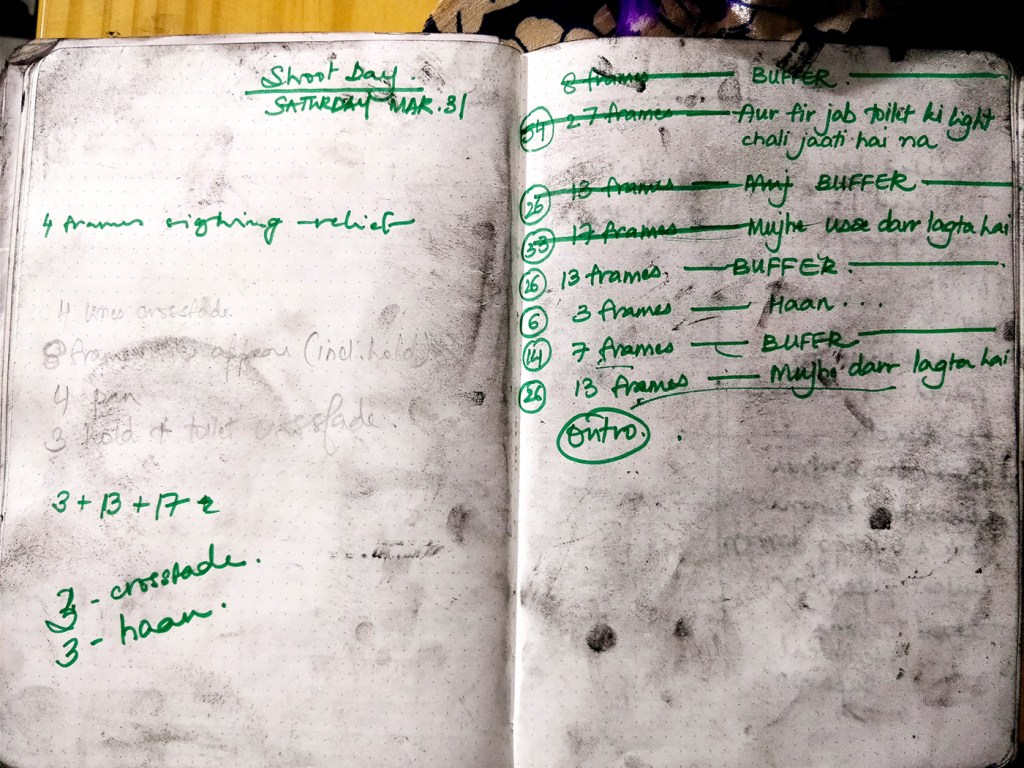 Shoot Day.
SATURDAY MAR. 31
4 frames sighing relief
4 lines crossfade
8 frames to appear (incl. hold)
4 pan
3 hold + toilet crossfade.
3 + 13 + 17 =
crossfade.
3 - haan.
8 frames — BUFFER
54 27 frames — Aur fir jab toilet ki light
chali jaati hai na
26 13 frames — BUFFER
17 frames — Mujhe usse darr lagta hai
26 13 frames. — BUFFER.
6 3 frames — Haan...
14 7 frames — BUFFER
26 13 frames — Mujhe darr lagta hai
Outro.